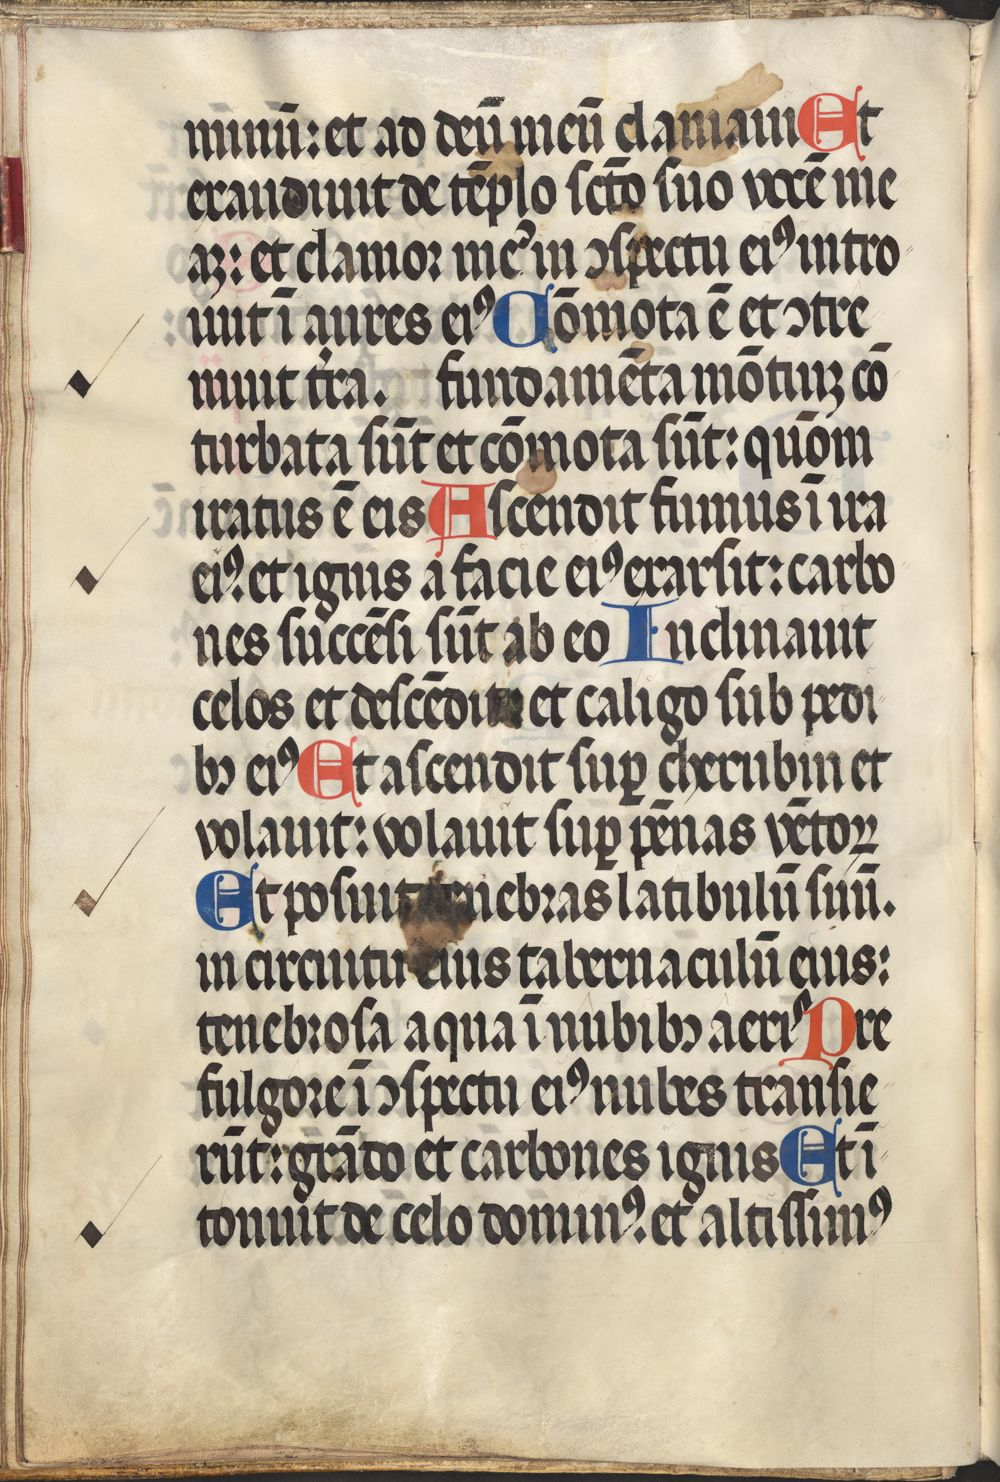 minū: et ad deū meū clamaui Et
exaudiuit de tēplo scto suo vocē me
aꝫ: et clamor meꝰ in ↄspectu eiꝰ intro
iuit ī aures eiꝰ Cōmota ē et ↄtre
muit tr̄a. fundamēta mōtiuꝫ cō
turbata sūt et cōmota sūt: quōm
iratus ē eis Ascendit fumus ī ira
eiꝰ: et ignis a facie eiꝰ exarsit: carbo
nes succēsi sūt ab eo Inclinauit
celos et descēdit et caligo sub pedi
bↄ eiꝰ Et ascendit suꝑ cherubin et
volauit: volauit suꝑ pēnas vētoꝝ
Et posuit tenebras latibulū suū.
in circuitu eius tabernaculū eius:
tenebrosa aqua ī nubibↄ aeriꝰ Pre
fulgore ī ↄspectu eiꝰ nubes transie
rūt: grādo et carbones ignis Et ī
tonuit de celo dominꝰ: et altissimꝰ